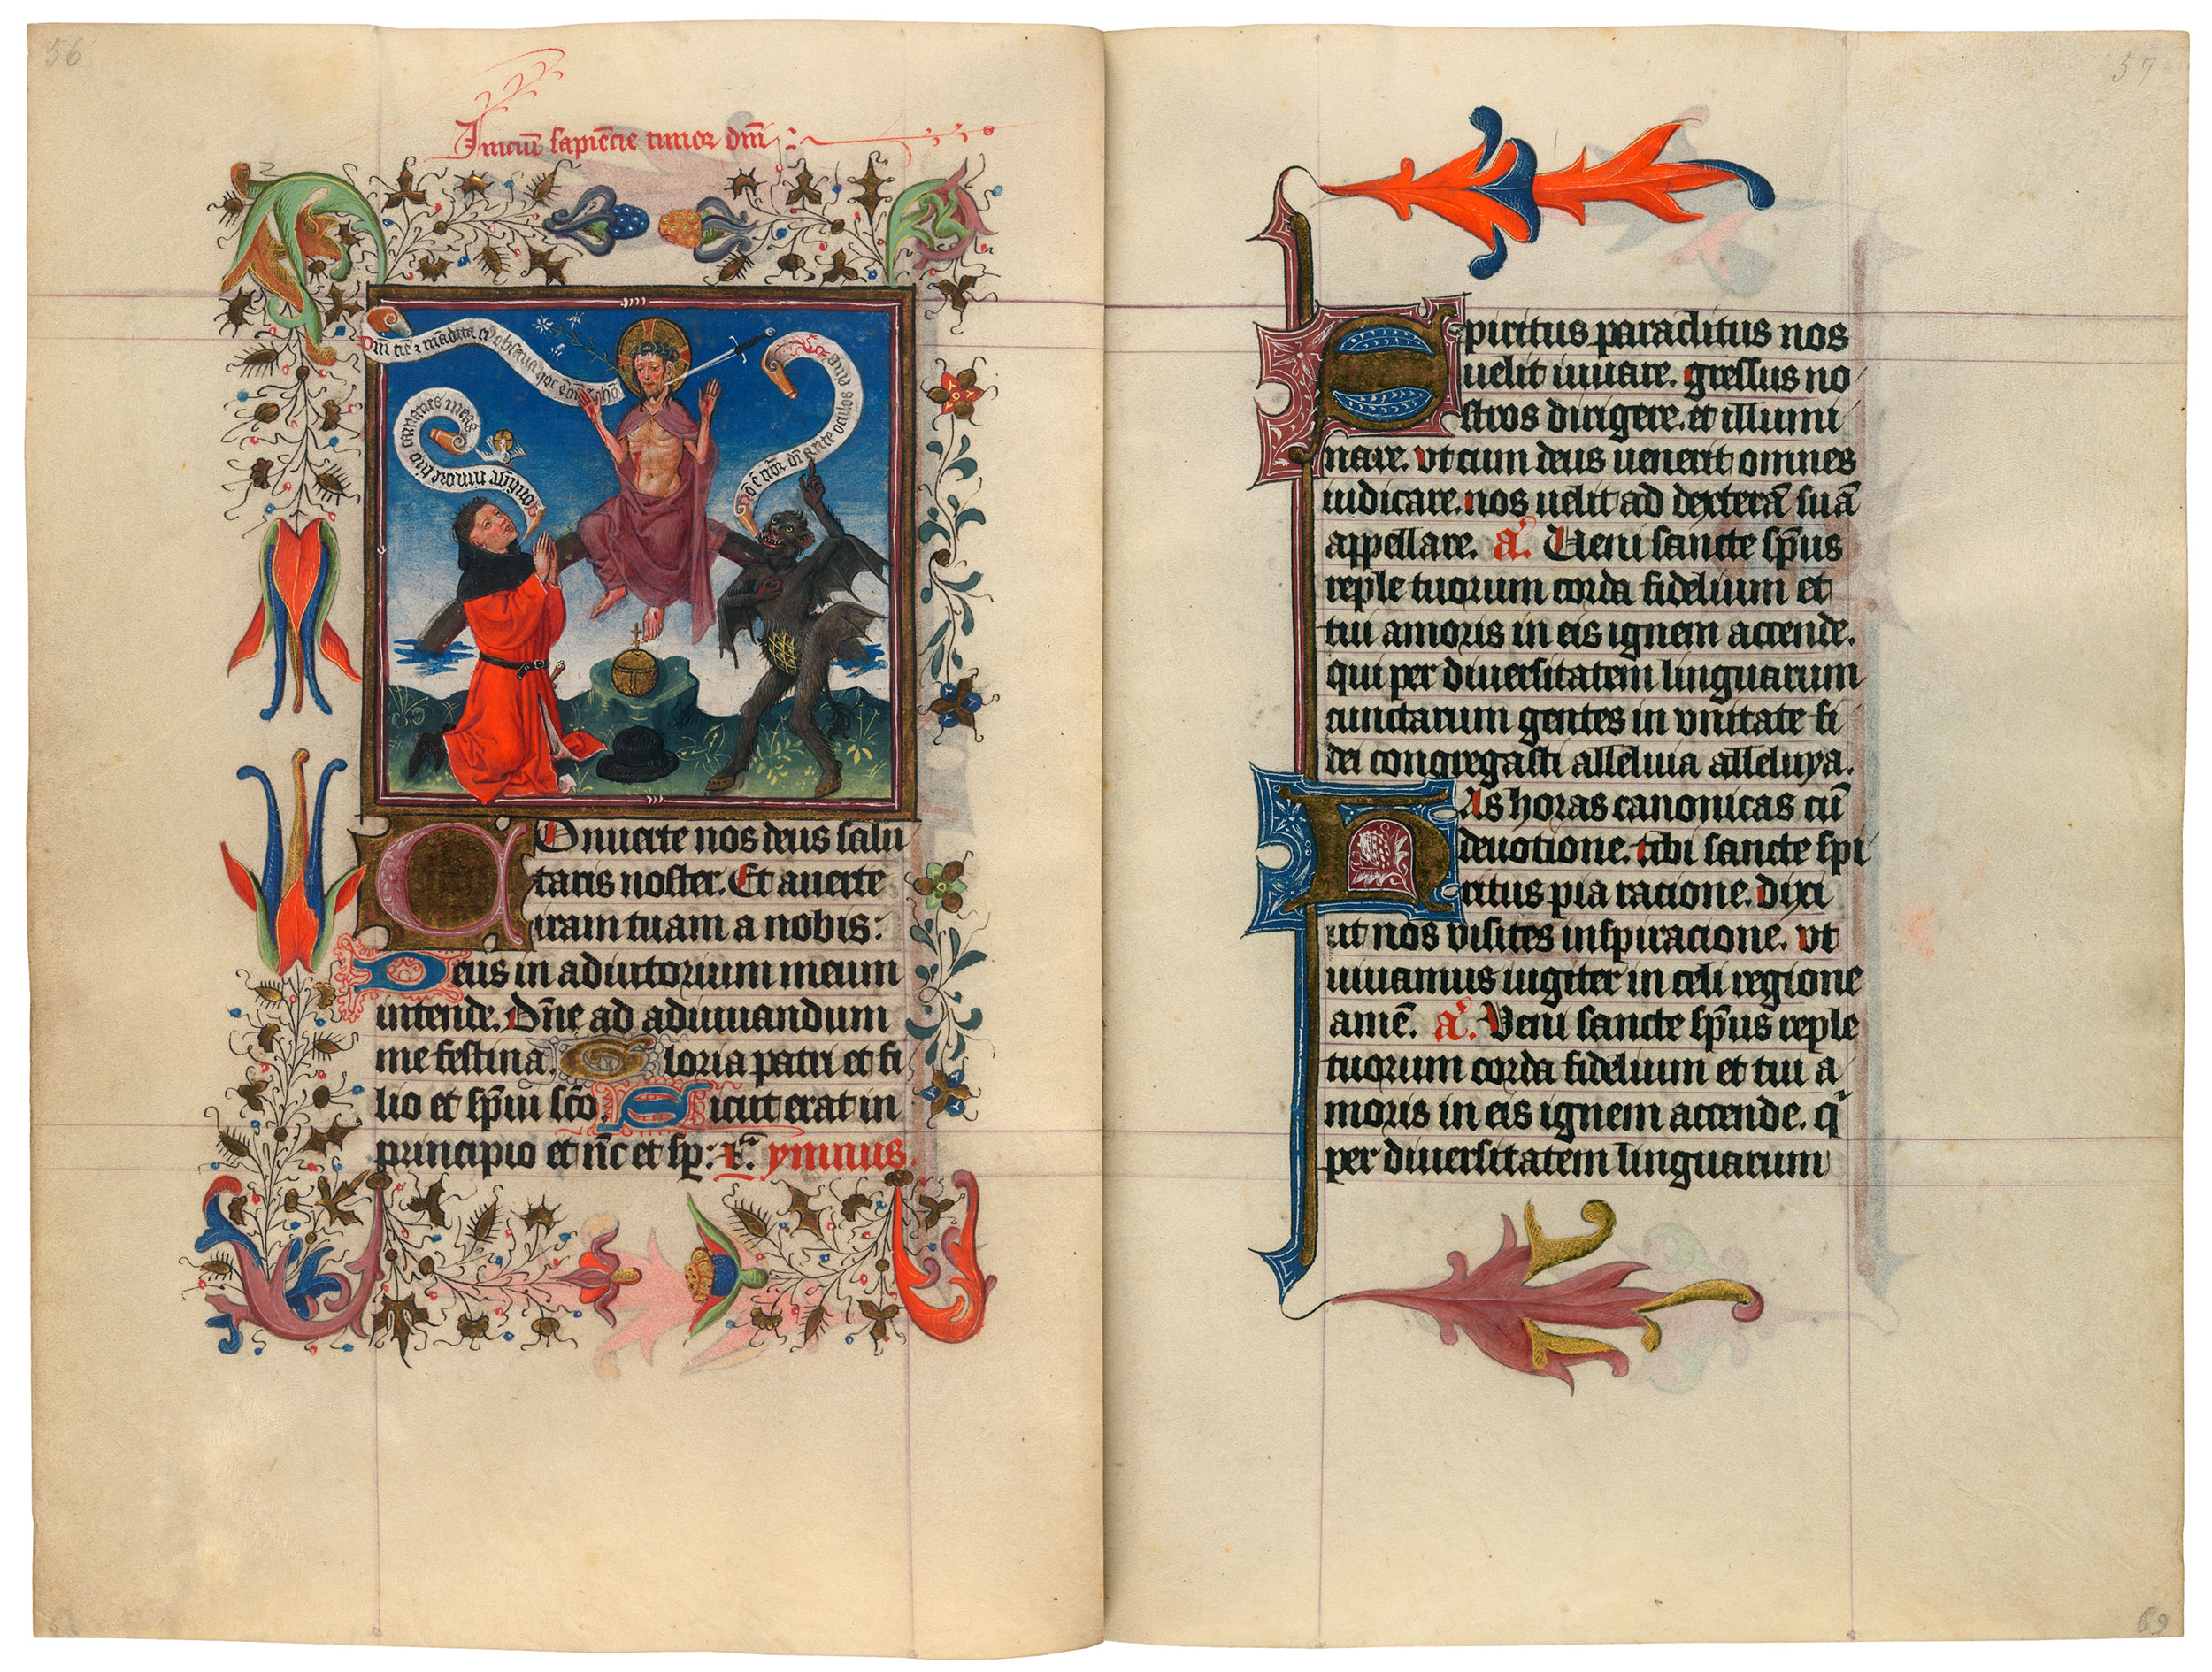 56
Iniciū sapiēcie timor dn̄i
Dn̄m time
carnes meas
Confige timore tuo
nō ē timor dei ante oculos
Onuerte nos deus salu
taris noster. Et auerte
iram tuam a nobis:
Deus in adiutorium meum
intende. Dn̄e ad adiuuandum
me festina. Gloria patri et fi
lio et sp̄ui sc̄o. Sicut erat in
principio et nc̄ et sp: ymnus.
57
Spiritus paraclitus nos
uelit iuuare. gressus no
stros dirigere. et illumi
nare. vt cum deus uenerit omnes
iudicare. nos uelit ad dexterā suā
appellare. a. Ueni sancte sp̄us
reple tuorum corda fidelium et
tui amoris in eis ignem accende.
qui per diuersitatem linguarum
cunctarum gentes in vnitate fi
dei congregasti alleluia alleluya.
HAs horas canonicas cū
deuotione. tibi sancte spi
ritus pia racione. dixi
ut nos visites inspiracione. vt
uiuamus iugiter in celi regione
amē. a. Veni sancte sp̄us reple
tuorum corda fidelium et tui a
moris in eis ignem accende. q
per diuersitatem linguarum
69